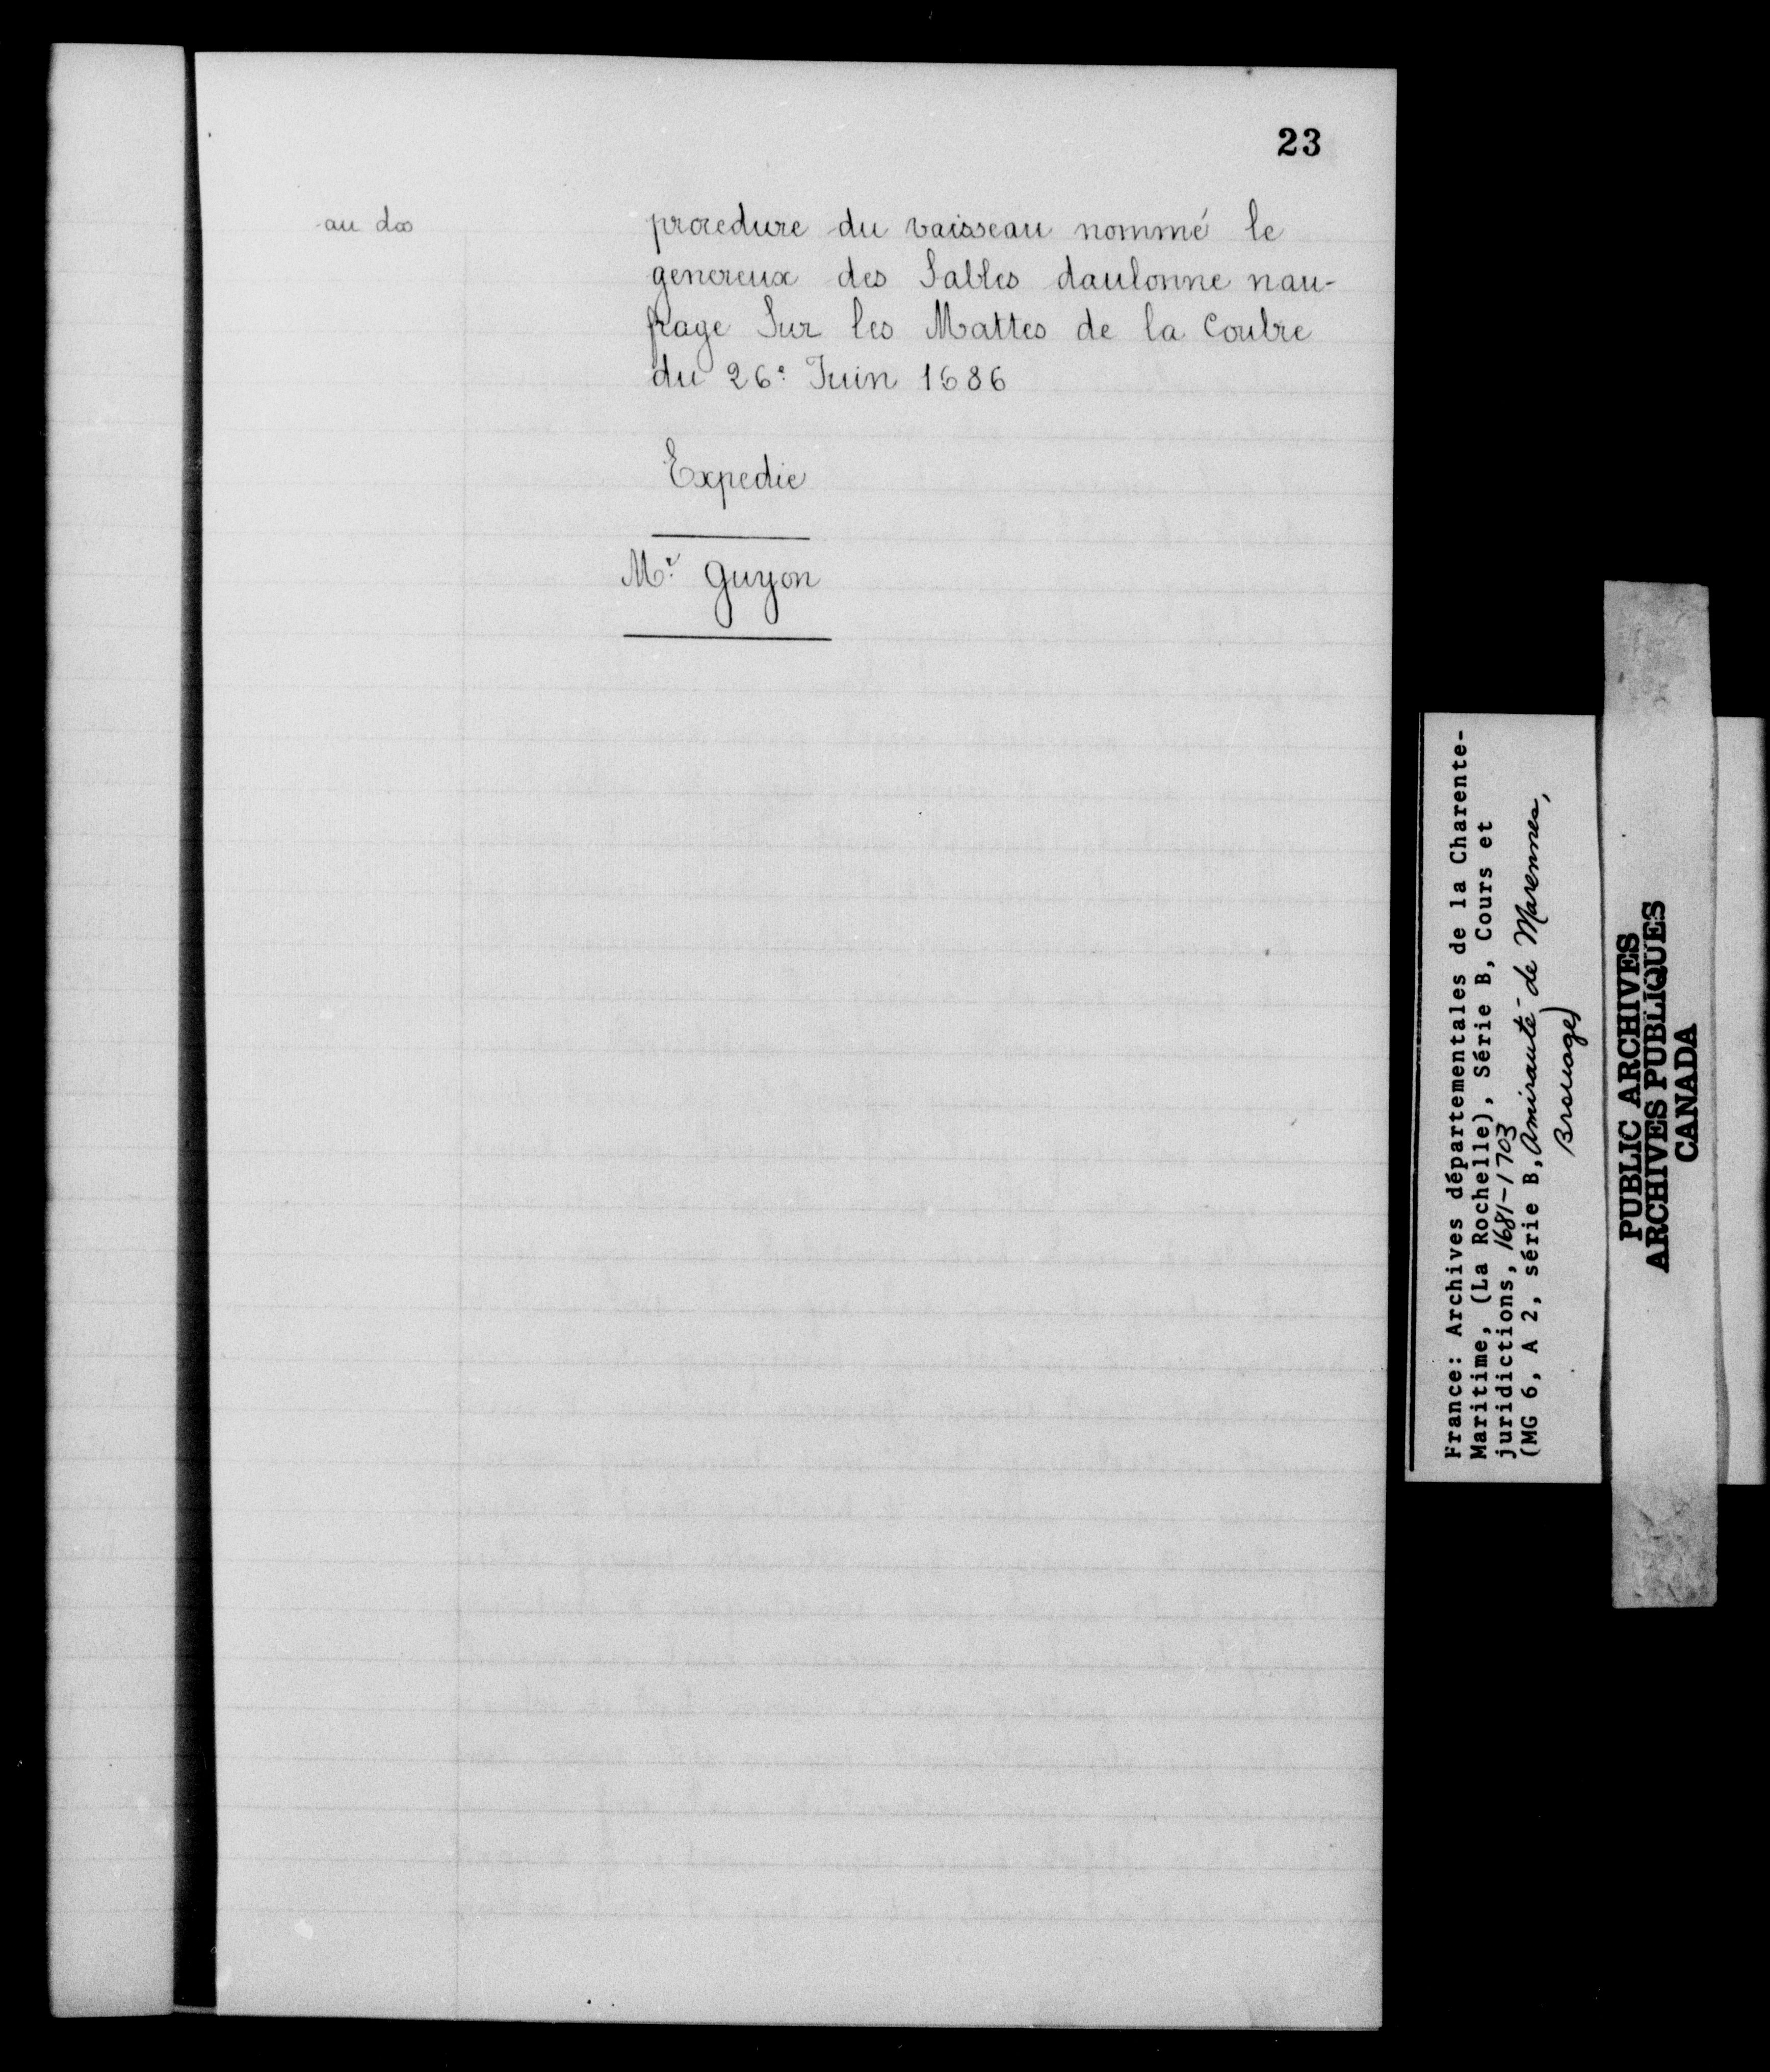 23
au dos
procedure du vaisseau nommé le
genereux des Sables daulonne nau-
frage Sur les Mattes de la Coubre
du 26e Juin 1686
Expedie
Mr Guyon
France: Archives départementales de la Charente-
Maritime, (La Rochelle), Série B, Cours et
juridictions, 1681-1703
(MG 6, A 2, série B, Amirauté de Marennes,
Brouage)
PUBLIC ARCHIVES
ARCHIVES PUBLIQUES
CANADA